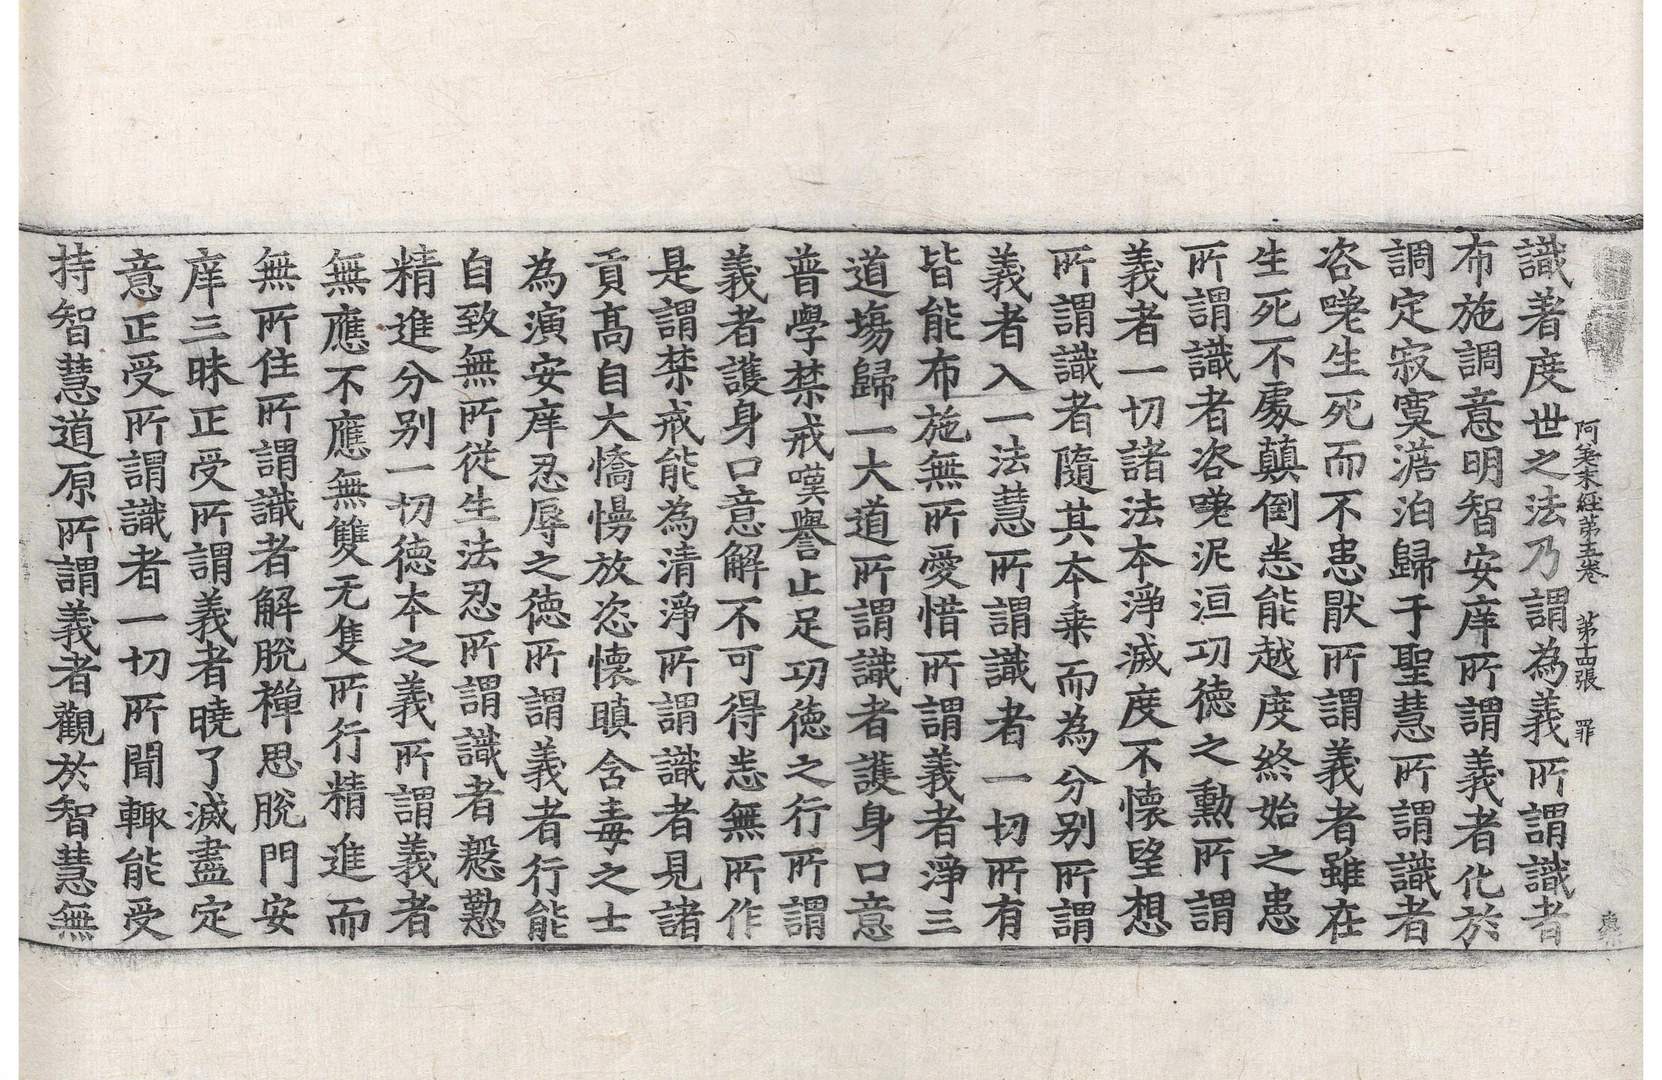 阿差末經第五卷　第十四張　罪
識著度世之法乃謂為義所謂識者
布施調意明智安庠所謂義者化於
調定寂寞澹泊歸于聖慧所謂識者
咨嗟生死而不患猒所謂義者雖在
生死不處顛倒悉能越度終始之患
所謂識者咨嗟泥洹功徳之勳所謂
義者一切諸法本淨滅度不懷望想
所謂識者隨其本乗而為分别所謂
義者入一法慧所謂識者一切所有
皆能布施無所愛惜所謂義者淨三
道場歸一大道所謂識者護身口意
普學禁戒嘆譽止足功徳之行所謂
義者護身口意解不可得悉無所作
是謂禁戒能為清淨所謂識者見諸
貢髙自大憍慢放恣懷瞋含毒之士
為演安庠忍辱之徳所謂義者行能
自致無所從生法忍所謂識者慇懃
精進分别一切徳本之義所謂義者
無應不應無雙无隻所行精進而
無所住所謂識者解脫禪思脫門安
庠三昧正受所謂義者曉了滅盡定
意正受所謂識者一切所聞輙能受
持智慧道原所謂義者觀於智慧無